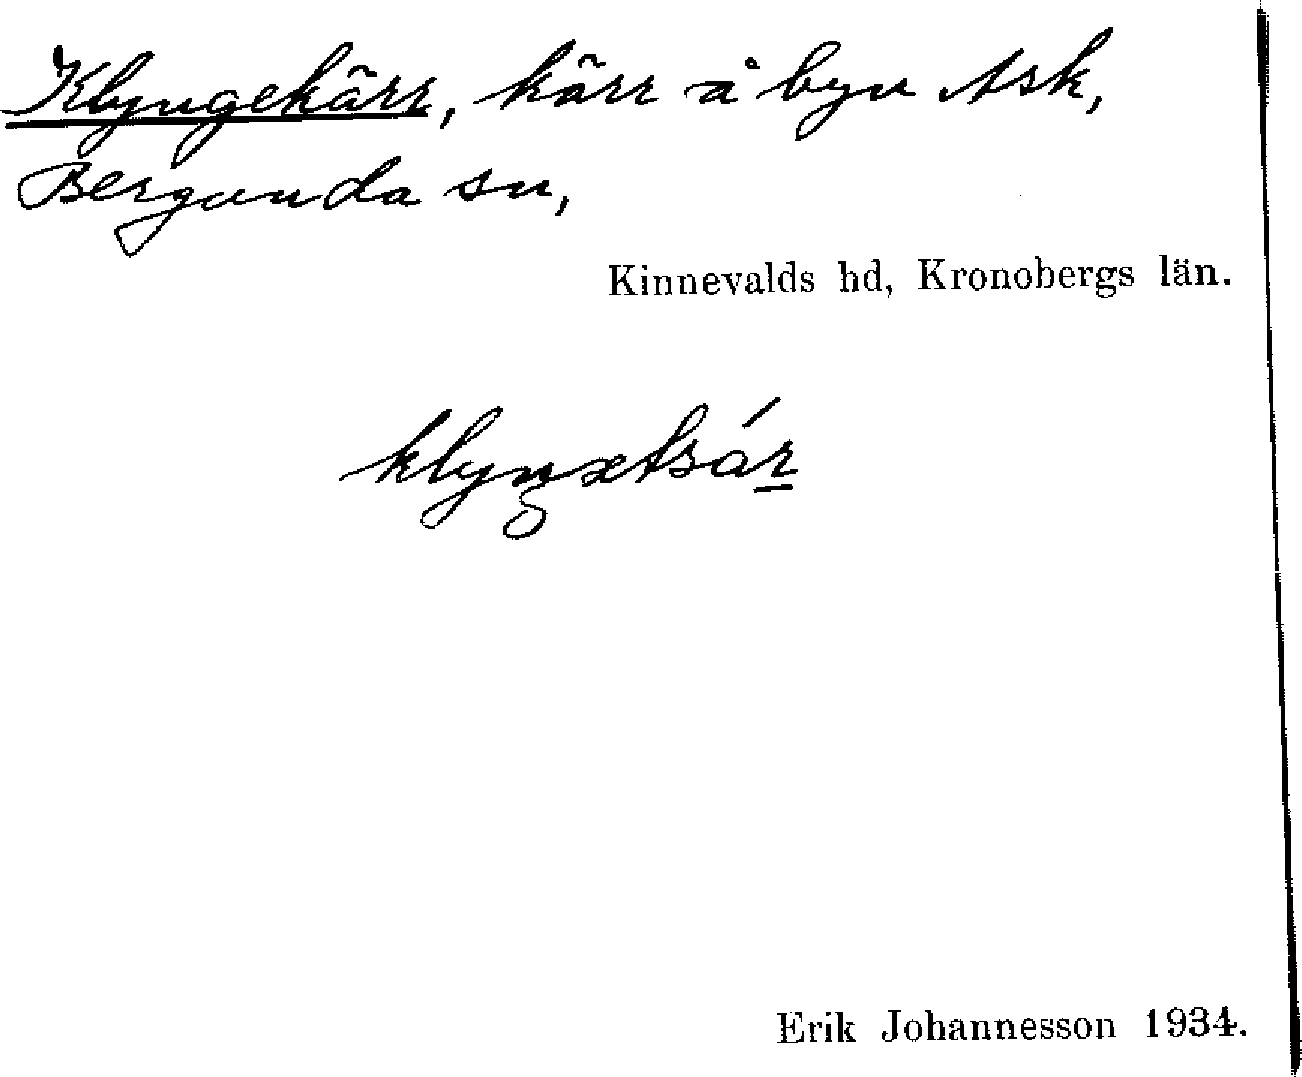 Klyngekärr, kärr å byn Ask,
Bergunda sn,
Kinnevalds hd, Kronobergs län.
Erik Johannesson 1934.